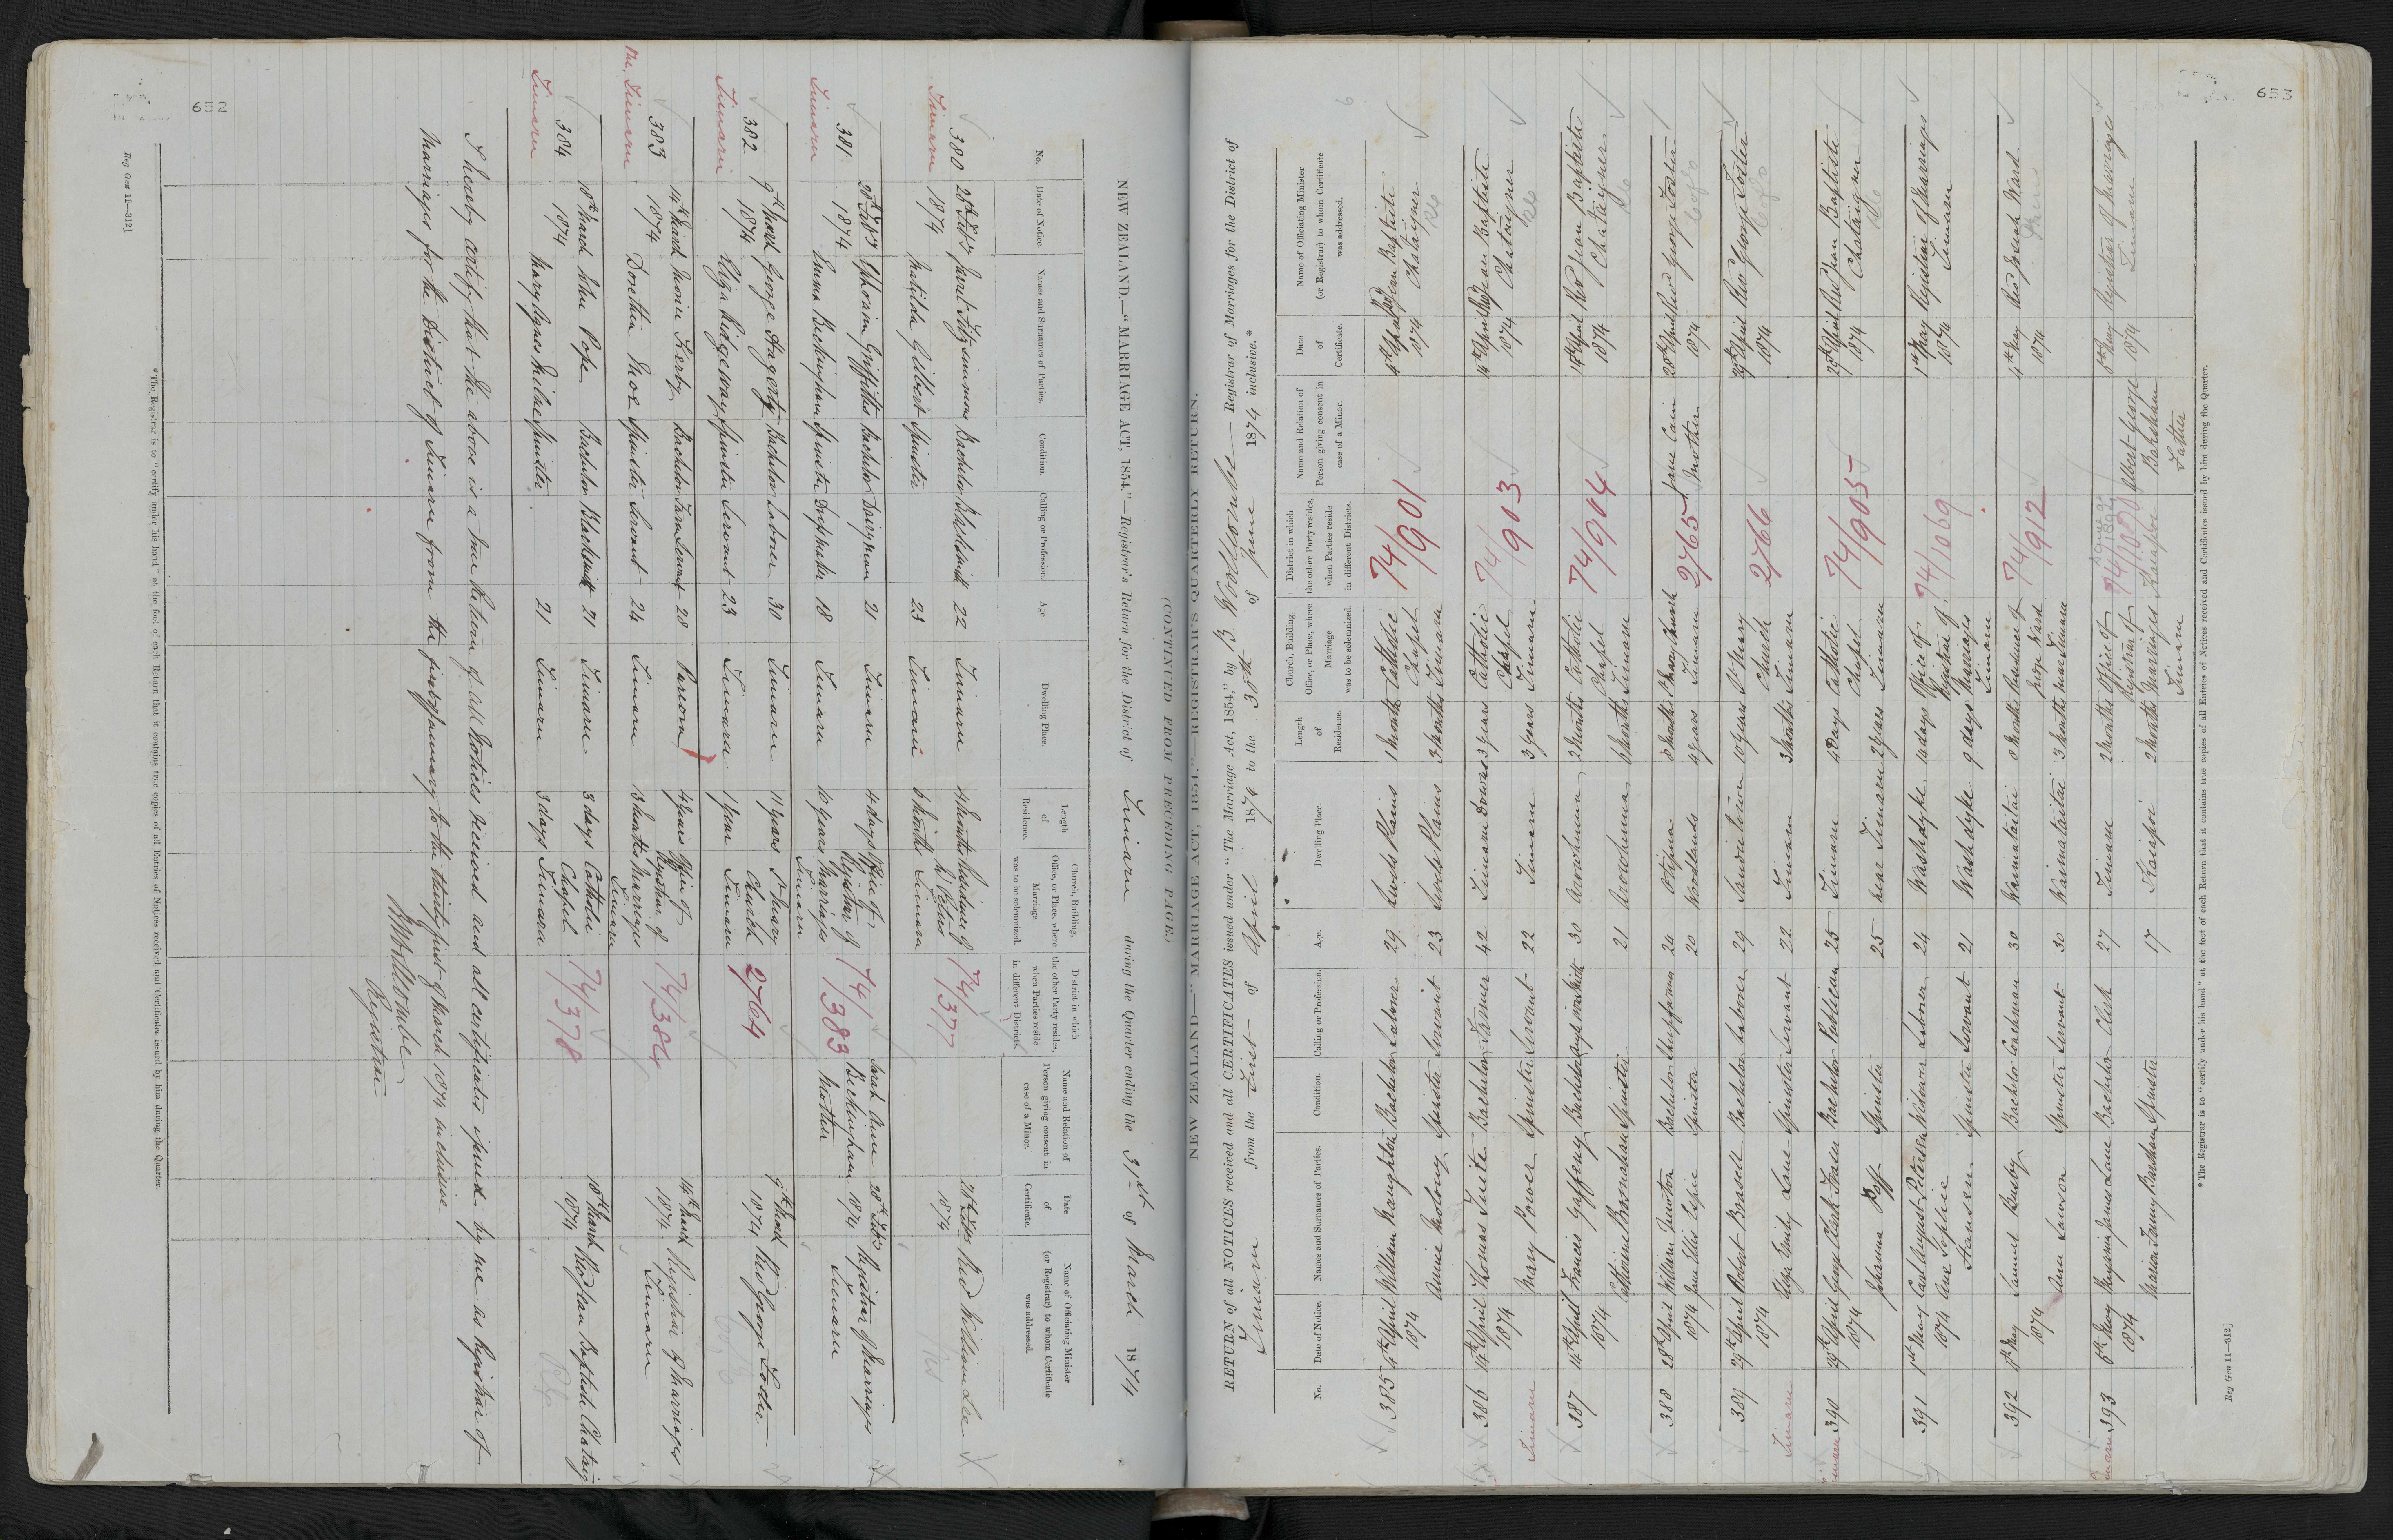 652
(CONTINUED FROM PRECEDING PAGE)
NEW ZEALAND.—"MARRIAGE ACT, 1854."—Registrar's Return for the District of Timaru during the Quarter ending the 31st of March 1874
No. Date of Notice. Names and Surnames of Parties. Condition. Calling or Profession. Age. Dwelling Place. Length of Residence. Church, Building, Office, or Place, where Marriage was to be solemnized. District in which the other Party resides, when Parties reside in different Districts. Name and Relation of Person giving consent in case of a Minor. Date of Certificate. Name of Officiating Minister (or Registrar) to whom Certificate was addressed.
380 28th Feby Fitzsimmons Bachelor Blacksmith 22 Timaru 4 Months Residence of 74/377 28th Feby Revd William
Timaru 1874 Matilda Gilbert Spinster 23 Timaru 6 Months Timaru 1874
381 28th Feby Ephraim Griffiths Bachelor Dairyman 21 Timaru 4 days Office of 74/383 Sarah Ann 28th Feby Registrar of Marriages
Timaru 1874 Emma Beckingham Spinster Dressmaker 18 Timaru 10 years Registrar of Marriages Timaru Beckingham Mother 1874 Timaru
382 9th March George Hagerty Bachelor Laborer 30 Timaru 11 years St Mary 2764 9th March Revd George Foster
Timaru 1874 Eliza Ridgeway Spinster Servant 23 Timaru 1 year Church Timaru 1874
383 14th March Kerby Bachelor Farm Servant 28 Pareora 4 years Office of 74/384 14th March Registrar of Marriages
Timaru 1874 Dorothea Spinster Servant 24 Timaru 3 Months Registrar of Marriages Timaru 1874 Timaru
384 18th March John Pope Bachelor Blacksmith 21 Timaru 3 days Catholic 74/378 18th March Revd Jean Baptiste
Timaru 1874 Mary Agnes Spinster 21 Timaru 3 days Chapel Timaru 1874
I hereby certify that the above is a true Return of all Notices received and all certificates issued by me as Registrar of
Marriages for the District of Timaru from the first of January to the thirty first of March 1874 inclusive
B Woollcombe
Registrar
*The Registrar is to "certify under his hand" at the foot of each Return that it contains true copies of all Entries of Notices received and Certificates issued by him during the Quarter.
Reg Gen 11—312]
653
NEW ZEALAND—"MARRIAGE ACT, 1854."—REGISTRAR'S QUARTERLY RETURN.
RETURN of all NOTICES received and all CERTIFICATES issued under "The Marriage Act, 1854," by B Woollcombe Registrar of Marriages for the District of
Timaru from the First of April 1874 to the 30th of June 1874 inclusive.*
No. Date of Notice. Names and Surnames of Parties. Condition. Calling or Profession. Age. Dwelling Place. Length of Residence. Church, Building, Office, or Place, where Marriage was to be solemnized. District in which the other Party resides, when Parties reside in different Districts. Name and Relation of Person giving consent in case of a Minor. Date of Certificate. Name of Officiating Minister (or Registrar) to whom Certificate was addressed.
385 4th April William Naughton Bachelor Laborer 29 Levels Plains 1 Month Catholic 74/901 4th April Revd Jean Baptiste
1874 Annie Moloney Spinster Servant 23 Levels Plains 3 Months Chapel Timaru 1874 Chataigner
386 14th April Thomas Tuite Bachelor Farmer 42 Timaru Downs 3 years Catholic 74/903 14th April Revd Jean Baptiste
Timaru 1874 Mary Power Spinster Servant 22 Timaru 3 years Chapel Timaru 1874 Chataigner
387 14th April Francis Gaffeney Bachelor 30 Arowhenua 2 Months Catholic 74/904 14th April Revd Jean Baptiste
1874 Catherine Brosnahan Spinster 21 Arowhenua Months Chapel Timaru 1874 Chataigner
388 28th April William Bachelor 24 Otipua 3 Months St Mary Church 2765 Jane Cain 28th April Revd George Foster
1874 Jane Ellis Espie Spinster 20 Woodlands 4 years Timaru Mother 1874
389 29th April Robert Brasell Bachelor Laborer 29 Sandietown 10 years St Mary 2766 29th April Revd George Foster
Timaru 1874 Eliza Emily Lane Spinster Servant 22 Timaru 3 Months Church Timaru 1874
390 29th April George Clark Bachelor Publican 25 Timaru 4 Days Catholic 74/905 29th April Revd Jean Baptiste
1874 Johanna Spinster 25 near Timaru 2 years Chapel Timaru 1874 Chataigner
391 1st May Carl August Petersen Widower Laborer 24 Washdyke 14 days Office of 74/1069 1st May Registrar of Marriages
1874 Ane Sophie Hansen Spinster Servant 21 Washdyke 9 days Registrar of Marriages Timaru 1874 Timaru
392 4th May Samuel Bachelor Coachman 30 Waimataitai 2 Months Residence of 74/912 4th May Revd Ward
1874 Ann Lawson Spinster Servant 30 Waimataitai 3 Months Revd Ward near Timaru 1874
393 8th May Benjamin James Lane Bachelor Clerk 27 Timaru 2 Months Office of 74/1070 Albert George 8th May Registrar of Marriages
1874 Marion Fanny Barkham Spinster 17 Kaiapoi 2 Months Registrar of Marriages Timaru Kaiapoi Barkham Father 1874 Timaru
*The Registrar is to "certify under his hand" at the foot of each Return that it contains true copies of all Entries of Notices received and Certificates issued by him during the Quarter.
Reg Gen 11—312]